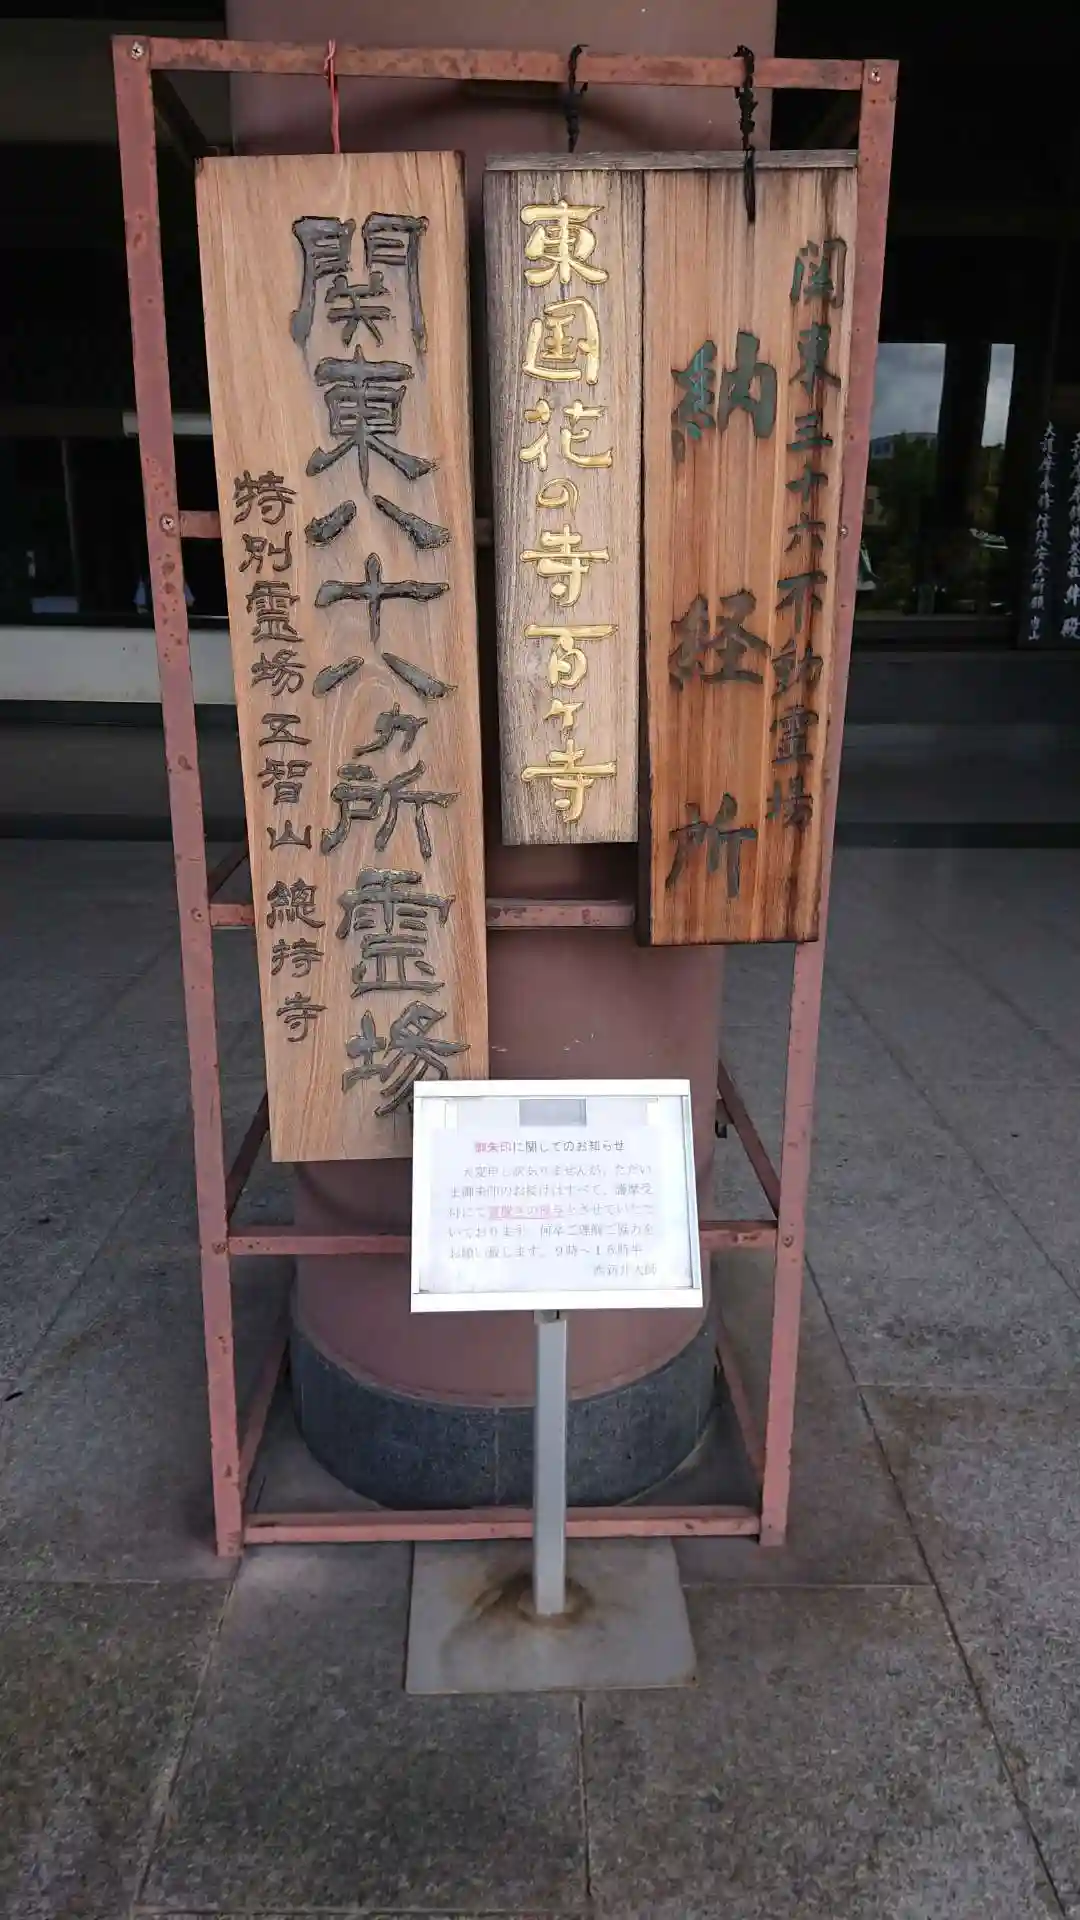 関東三十六不動霊場
納経所
東国花の寺百ヶ寺
関東八十八カ所霊場
特別霊場五智山總持寺
御朱印に関してのお知らせ
大変申し訳ありませんが、ただい
ま御朱印のお授けはすべて、護摩受
付にて書置きの授与とさせていただ
いております。何卒ご理解ご協力を
お願い致します。９時～１６時半
西新井大師